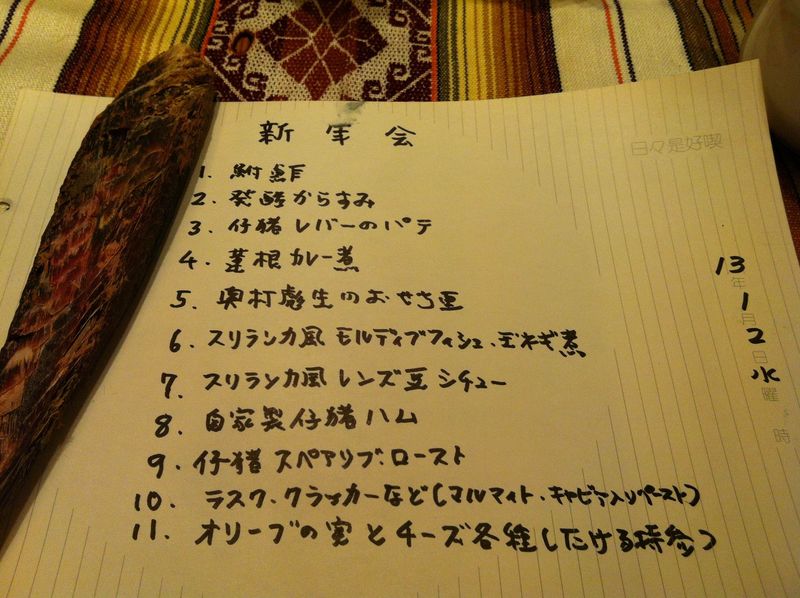 新年会
1. 鮒鮓
2. 発酵からすみ
3. 仔猪レバーのパテ
4. 蓮根カレー煮
5. 奥村彪生のおせち豆
6. スリランカ風 モルディブフィシュ.玉ネギ煮
7. スリランカ風レンズ豆シチュー
8. 自家製仔猪ハム
9. 仔猪スペアリブ.ロースト
10. ラスク.クラッカーなど(マルマイト.キャビア入りペースト)
11. オリーブの実とチーズ各種(たける持参)
日々是好喫
13年1月2日水曜 時